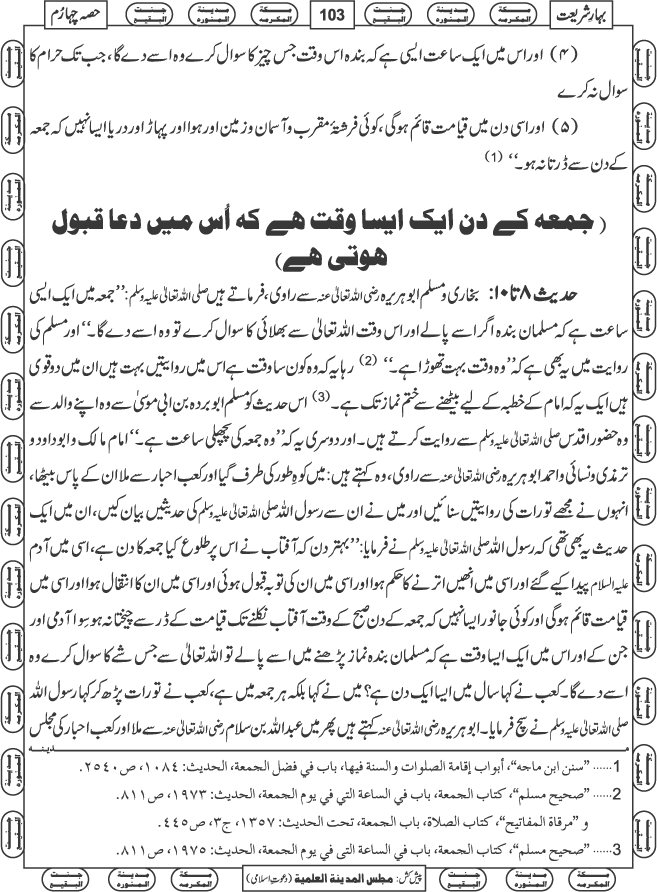 بہارِ شریعت
103
حصہ چہارم
(۴) اور اس میں ایک ساعت ایسی ہے کہ بندہ اس وقت جس چیز کا سوال کرے وہ اسے دے گا، جب تک حرام کا
سوال نہ کرے
(۵) اور اسی دن میں قیامت قائم ہوگی، کوئی فرشتۂ مقرب و آسمان و زمین اور ہوا اور پہاڑ اور دریا ایسا نہیں کہ جمعہ
کے دن سے ڈرتا نہ ہو۔‘‘ (1)
(جمعہ کے دن ایک ایسا وقت ہے کہ اُس میں دعا قبول
ہوتی ہے)
حدیث ۸ تا ۱۰: بخاری و مسلم ابوہریرہ رضی اللہ تعالیٰ عنہ سے راوی، فرماتے ہیں صلی اللہ تعالیٰ علیہ وسلم: ’’جمعہ میں ایک ایسی
ساعت ہے کہ مسلمان بندہ اگر اسے پا لے اور اس وقت اللہ تعالیٰ سے بھلائی کا سوال کرے تو وہ اسے دے گا۔‘‘ اور مسلم کی
روایت میں یہ بھی ہے کہ ’’وہ وقت بہت تھوڑا ہے۔‘‘ (2) رہا یہ کہ وہ کون سا وقت ہے اس میں روایتیں بہت ہیں ان میں دو قوی
ہیں ایک یہ کہ امام کے خطبہ کے لیے بیٹھنے سے ختم نماز تک ہے۔ (3) اس حدیث کو مسلم ابو بردہ بن ابی موسیٰ سے وہ اپنے والد سے
وہ حضور اقدس صلی اللہ تعالیٰ علیہ وسلم سے روایت کرتے ہیں۔ اور دوسری یہ کہ ’’وہ جمعہ کی پچھلی ساعت ہے۔‘‘ امام مالک و ابوداود و
ترمذی و نسائی و احمد ابوہریرہ رضی اللہ تعالیٰ عنہ سے راوی، وہ کہتے ہیں: میں کوہ طور کی طرف گیا اور کعب احبار سے ملا ان کے پاس بیٹھا،
انہوں نے مجھے تورات کی روایتیں سنائیں اور میں نے ان سے رسول اللہ صلی اللہ تعالیٰ علیہ وسلم کی حدیثیں بیان کیں، ان میں ایک
حدیث یہ بھی تھی کہ رسول اللہ صلی اللہ تعالیٰ علیہ وسلم نے فرمایا: ’’بہتر دن کہ آفتاب نے اس پر طلوع کیا جمعہ کا دن ہے، اسی میں آدم
علیہ السلام پیدا کیے گئے اور اسی میں انھیں اترنے کا حکم ہوا اور اسی میں ان کی توبہ قبول ہوئی اور اسی میں ان کا انتقال ہوا اور اسی میں
قیامت قائم ہوگی اور کوئی جانور ایسا نہیں کہ جمعہ کے دن صبح کے وقت آفتاب نکلنے تک قیامت کے ڈر سے چیختا نہ ہو سِوا آدمی اور
جن کے اور اس میں ایک ایسا وقت ہے کہ مسلمان بندہ نماز پڑھنے میں اسے پا لے تو اللہ تعالیٰ سے جس شے کا سوال کرے وہ
اسے دے گا۔ کعب نے کہا سال میں ایسا ایک دن ہے؟ میں نے کہا بلکہ ہر جمعہ میں ہے، کعب نے تورات پڑھ کر کہا رسول اللہ
صلی اللہ تعالیٰ علیہ وسلم نے سچ فرمایا۔ ابوہریرہ رضی اللہ تعالیٰ عنہ کہتے ہیں پھر میں عبداللہ بن سلام رضی اللہ تعالیٰ عنہ سے ملا اور کعب احبار کی مجلس
مدینہ
1...... ’’سنن ابن ماجه‘‘، أبواب إقامة الصلوات والسنة فيها، باب في فضل الجمعة، الحديث: ١٠٨٤، ص٢٥٤٠.
2...... ’’صحيح مسلم‘‘، كتاب الجمعة، باب في الساعة التي في يوم الجمعة، الحديث: ١٩٧٣، ص٨١١.
و ’’مرقاة المفاتيح‘‘، كتاب الصلاة، باب الجمعة، تحت الحديث: ١٣٥٧، ج٣، ص٤٤٥.
3...... ’’صحيح مسلم‘‘، كتاب الجمعة، باب في الساعة التي في يوم الجمعة، الحديث: ١٩٧٥، ص٨١١.
پیش کش: مجلس المدينة العلمية (دعوتِ اسلامی)